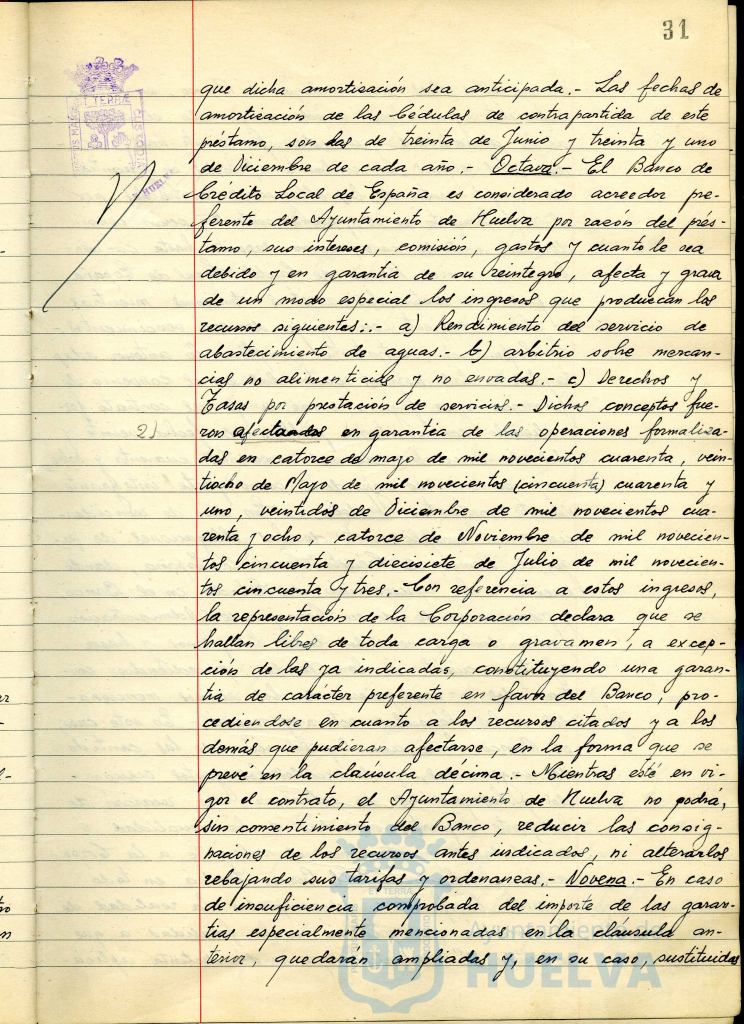 31
que dicha amortisación sea anticipada.- Las fechas de
amortización de las Cédulas de contrapartida de este
préstamo, son las de treinta de Junio y treinta y uno
de Diciembre de cada año.- Octava.- El Banco de
Crédito Local de España es considerado acreedor pre-
ferente del Ayuntamiento de Huelva por razón del prés-
tamo, sus intereses, comisión, gastos y cuanto le sea
debido y en garantia de su reintegro, afecta y grava
de un modo especial los ingresos que produzcan los
recursos siguientes:.- a) Rendimiento del servicio de
abastecimiento de aguas.- b) arbitrio sobre mercan-
cias no alimenticias y no envadas.- c) Derechos y
Tasas por prestación de servicios.- Dichos conceptos fue-
2)
ron afectandos en garantia de las operaciones formaliza-
das en catorce de mayo de mil novecientos cuarenta, vein-
tiocho de Mayo de mil novecientos (cincuenta) cuarenta y
uno, veintidos de Diciembre de mil novecientos cua-
renta y ocho, catorce de Noviembre de mil novecien-
tos cincuenta y diecisiete de Julio de mil novecien-
tos cincuenta y tres.- Con referencia a estos ingresos,
la representación de la Corporación declara que se
hallan libres de toda carga o gravamen, a excep-
ción de las ya indicadas, constituyendo una garan-
tia de carácter preferente en favor del Banco, pro-
cediendose en cuanto a los recursos citados y a los
demás que pudieran afectarse, en la forma que se
prevé en la claúsula décima.- Mientras esté en vi-
gor el contrato, el Ayuntamiento de Huelva no podrá,
sin consentimiento del Banco, reducir las consig-
naciones de los recursos antes indicados, ni alterarlos
rebajando sus tarifas y ordenanzas.- Novena.- En caso
de insuficiencia comprobada del importe de las garan-
tias especialmente mencionadas en la claúsula an-
terior, quedarán ampliadas y, en su caso, sustituidas
HUELVA